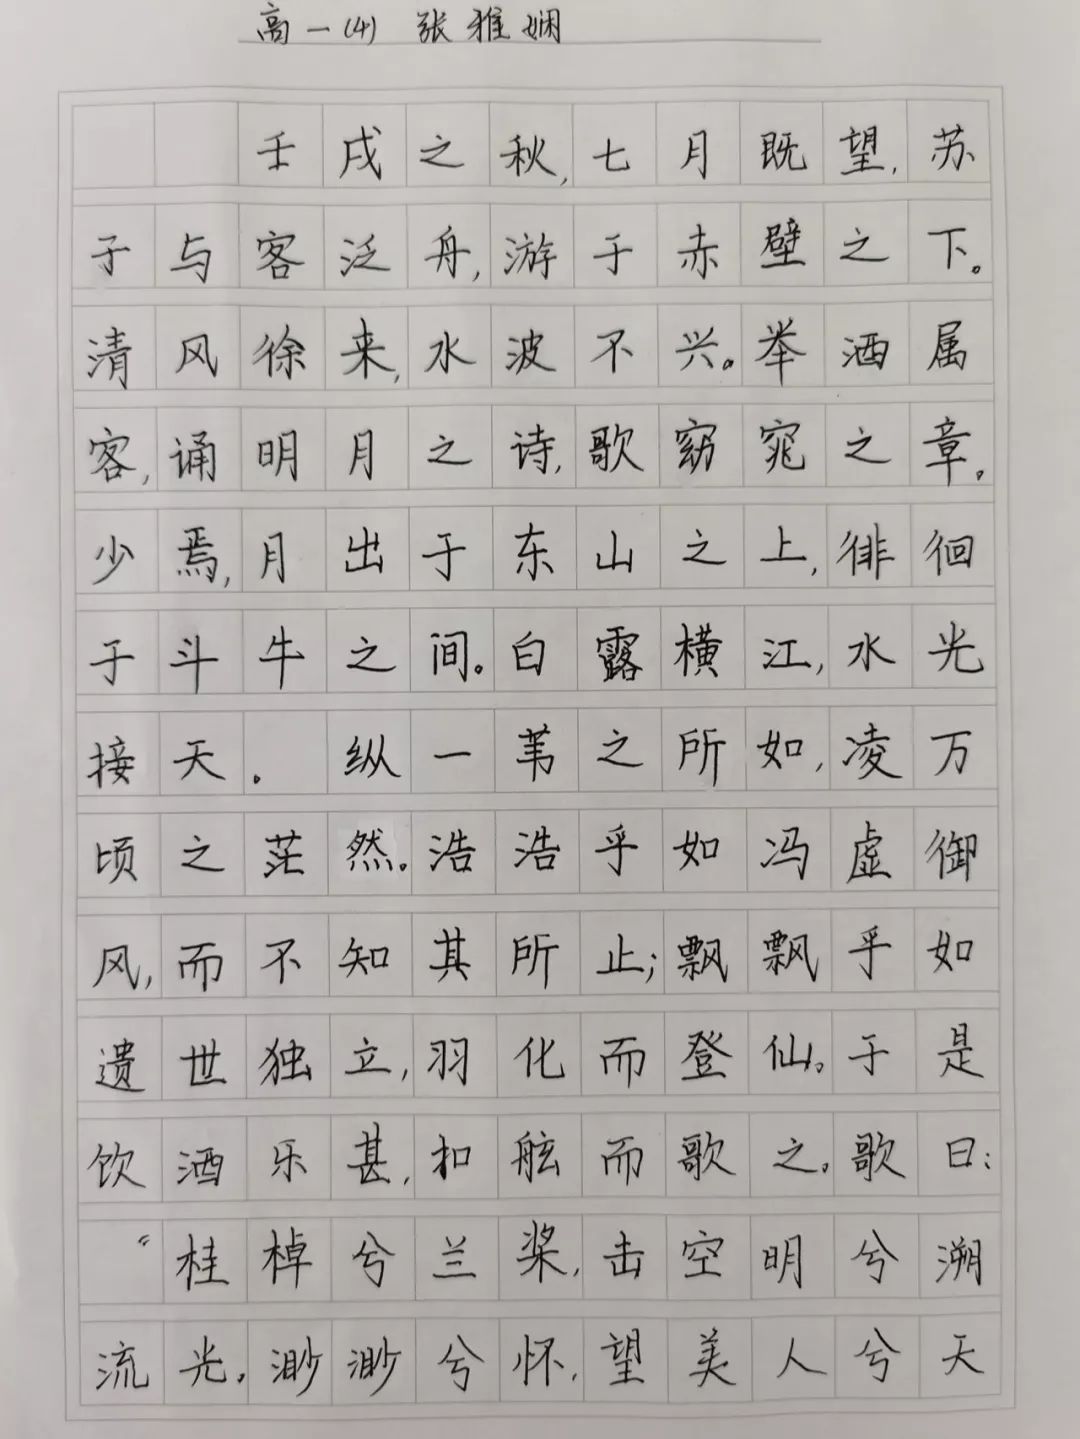 高一(4) 张雅娴
壬戌之秋,七月既望,苏
子与客泛舟,游于赤壁之下。
清风徐来,水波不兴。举酒属
客,诵明月之诗,歌窈窕之章。
少焉,月出于东山之上,徘徊
于斗牛之间。白露横江,水光
接天。 纵一苇之所如,凌万
顷之茫然。浩浩乎如冯虚御
风,而不知其所止;飘飘乎如
遗世独立,羽化而登仙。于是
饮酒乐甚,扣舷而歌之。歌曰:
“桂棹兮兰桨,击空明兮溯
流光。渺渺兮怀,望美人兮天